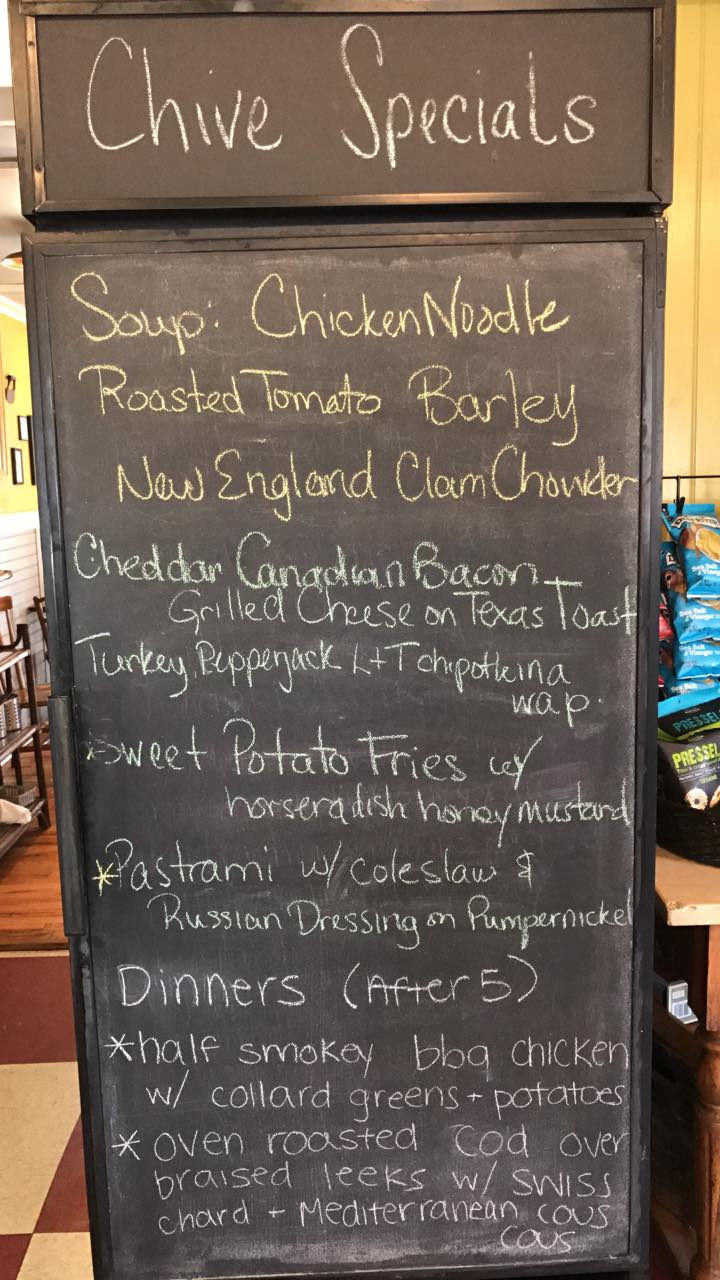 Chive Specials
Soup: Chicken Noodle
Roasted Tomato Barley
New England Clam Chowder
Cheddar Canadian Bacon
Grilled Cheese on Texas Toast
Turkey, Pepperjack L+T chipotle in a
wap.
Sweet Potato Fries w/
horseradish honey mustard
*Pastrami w/ coleslaw &
Russian Dressing on Pumpernickel
Dinners (After 5)
*half smokey bbq chicken
w/ collard greens + potatoes
* oven roasted cod over
braised leeks w/ swiss
chard + Mediterranean cous
cous
Sea Salt
& Vinegar
Sea Salt
& Vinegar
Sea Salt
& Vinegar
Sea Salt
PRESSEL
PRESSEL
SESAME